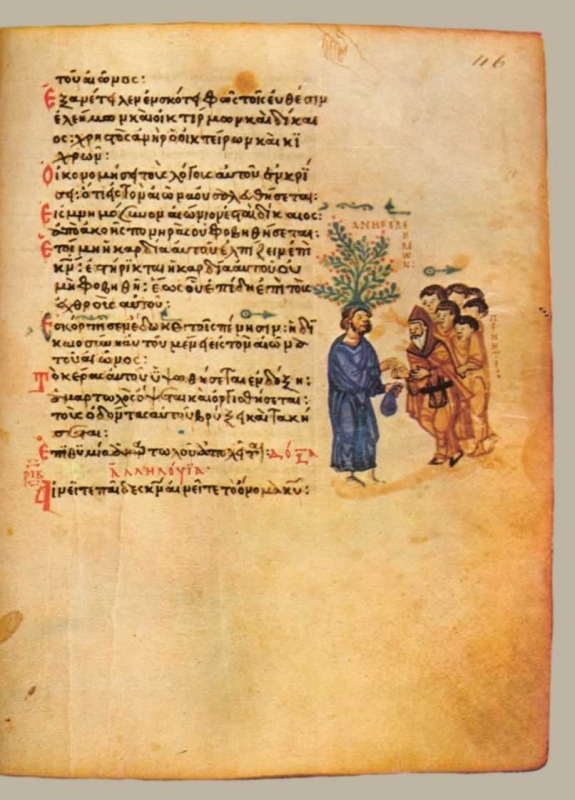 τοῦ αἰῶνος:
46
Ἐξανέτειλεν ἐν σκότει φῶς τοῖς εὐθέσιν
ἐλεήμων καὶ οἰκτίρμων καὶ δίκαι
ος: χρηστὸς ἀνὴρ ὁ οἰκτείρων καὶ κι
χρῶν:
Οἰκονομήσει τοὺς λόγους αὐτοῦ ἐν κρί
σει: ὅτι εἰς τὸν αἰῶνα οὐ σαλευθήσεται:
Εἰς μνημόσυνον αἰώνιον ἔσται δίκαιος:
ἀπὸ ἀκοῆς πονηρᾶς οὐ φοβηθήσεται:
Ἑτοίμη ἡ καρδία αὐτοῦ ἐλπίζειν ἐπὶ
κν̄: ἐστήρικται ἡ καρδία αὐτοῦ οὐ
μὴ φοβηθῇ: ἕως οὗ ἐπίδῃ ἐπὶ τοὺς
ἐχθροὺς αὐτοῦ:
Ἐσκόρπισεν ἔδωκε τοῖς πένησιν: ἡ δι
καιοσύνη αὐτοῦ μένει εἰς τὸν αἰῶνα
τοῦ αἰῶνος:
Τὸ κέρας αὐτοῦ ὑψωθήσεται ἐν δόξῃ:
ἁμαρτωλὸς ὄψεται καὶ ὀργισθήσεται:
τοὺς ὀδόντας αὐτοῦ βρύξει καὶ τακή
σεται:
Ἐπιθυμία ἁμαρτωλοῦ ἀπολεῖται: δόξα
ἀλληλούϊα
ριβ
Αἰνεῖτε παῖδες κν̄ αἰνεῖτε τὸ ὄνομα κῡ: